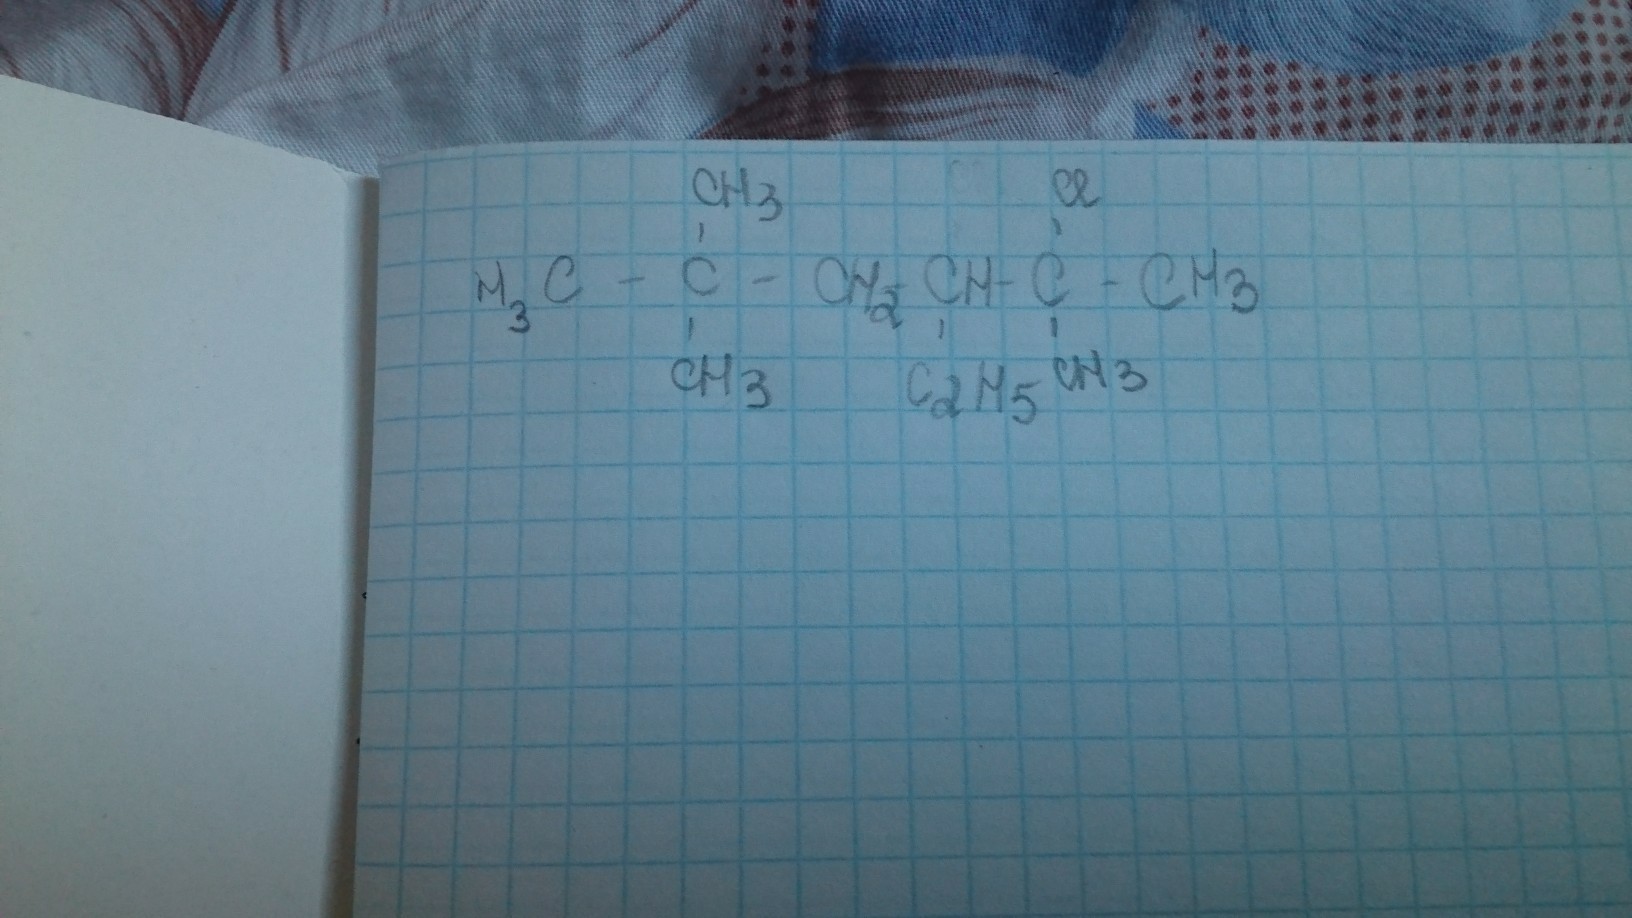 CH3 Cl
H3C - C - CH2 - CH - C - CH3
CH3 C2H5 CH3